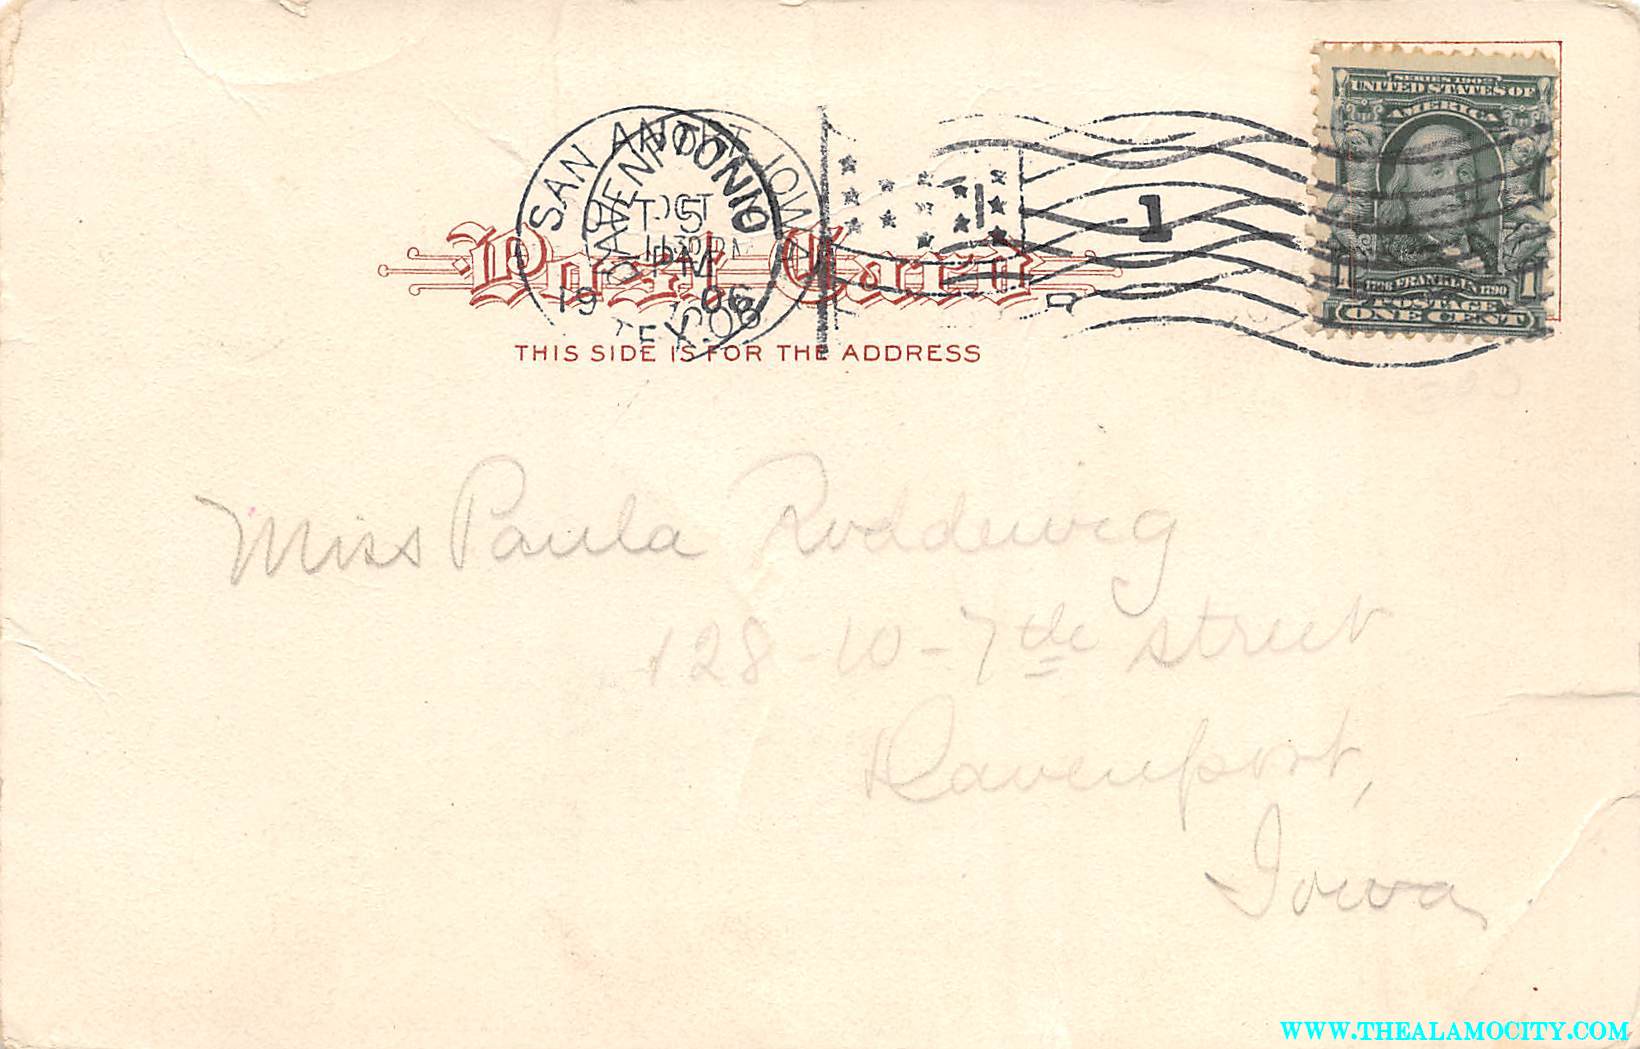 SERIES 1902
UNITED STATES OF
AMERICA
1 1798 FRANKLIN 1790 1
POSTAGE
ONE CENT
SAN ANTONIO
OCT 5
PM
19 06
TEX.
DAVENPORT IOWA
1
Post Card
THIS SIDE IS FOR THE ADDRESS
Miss Paula Roddewig
128-10-7th street
Davenport,
Iowa
WWW.THEALAMOCITY.COM